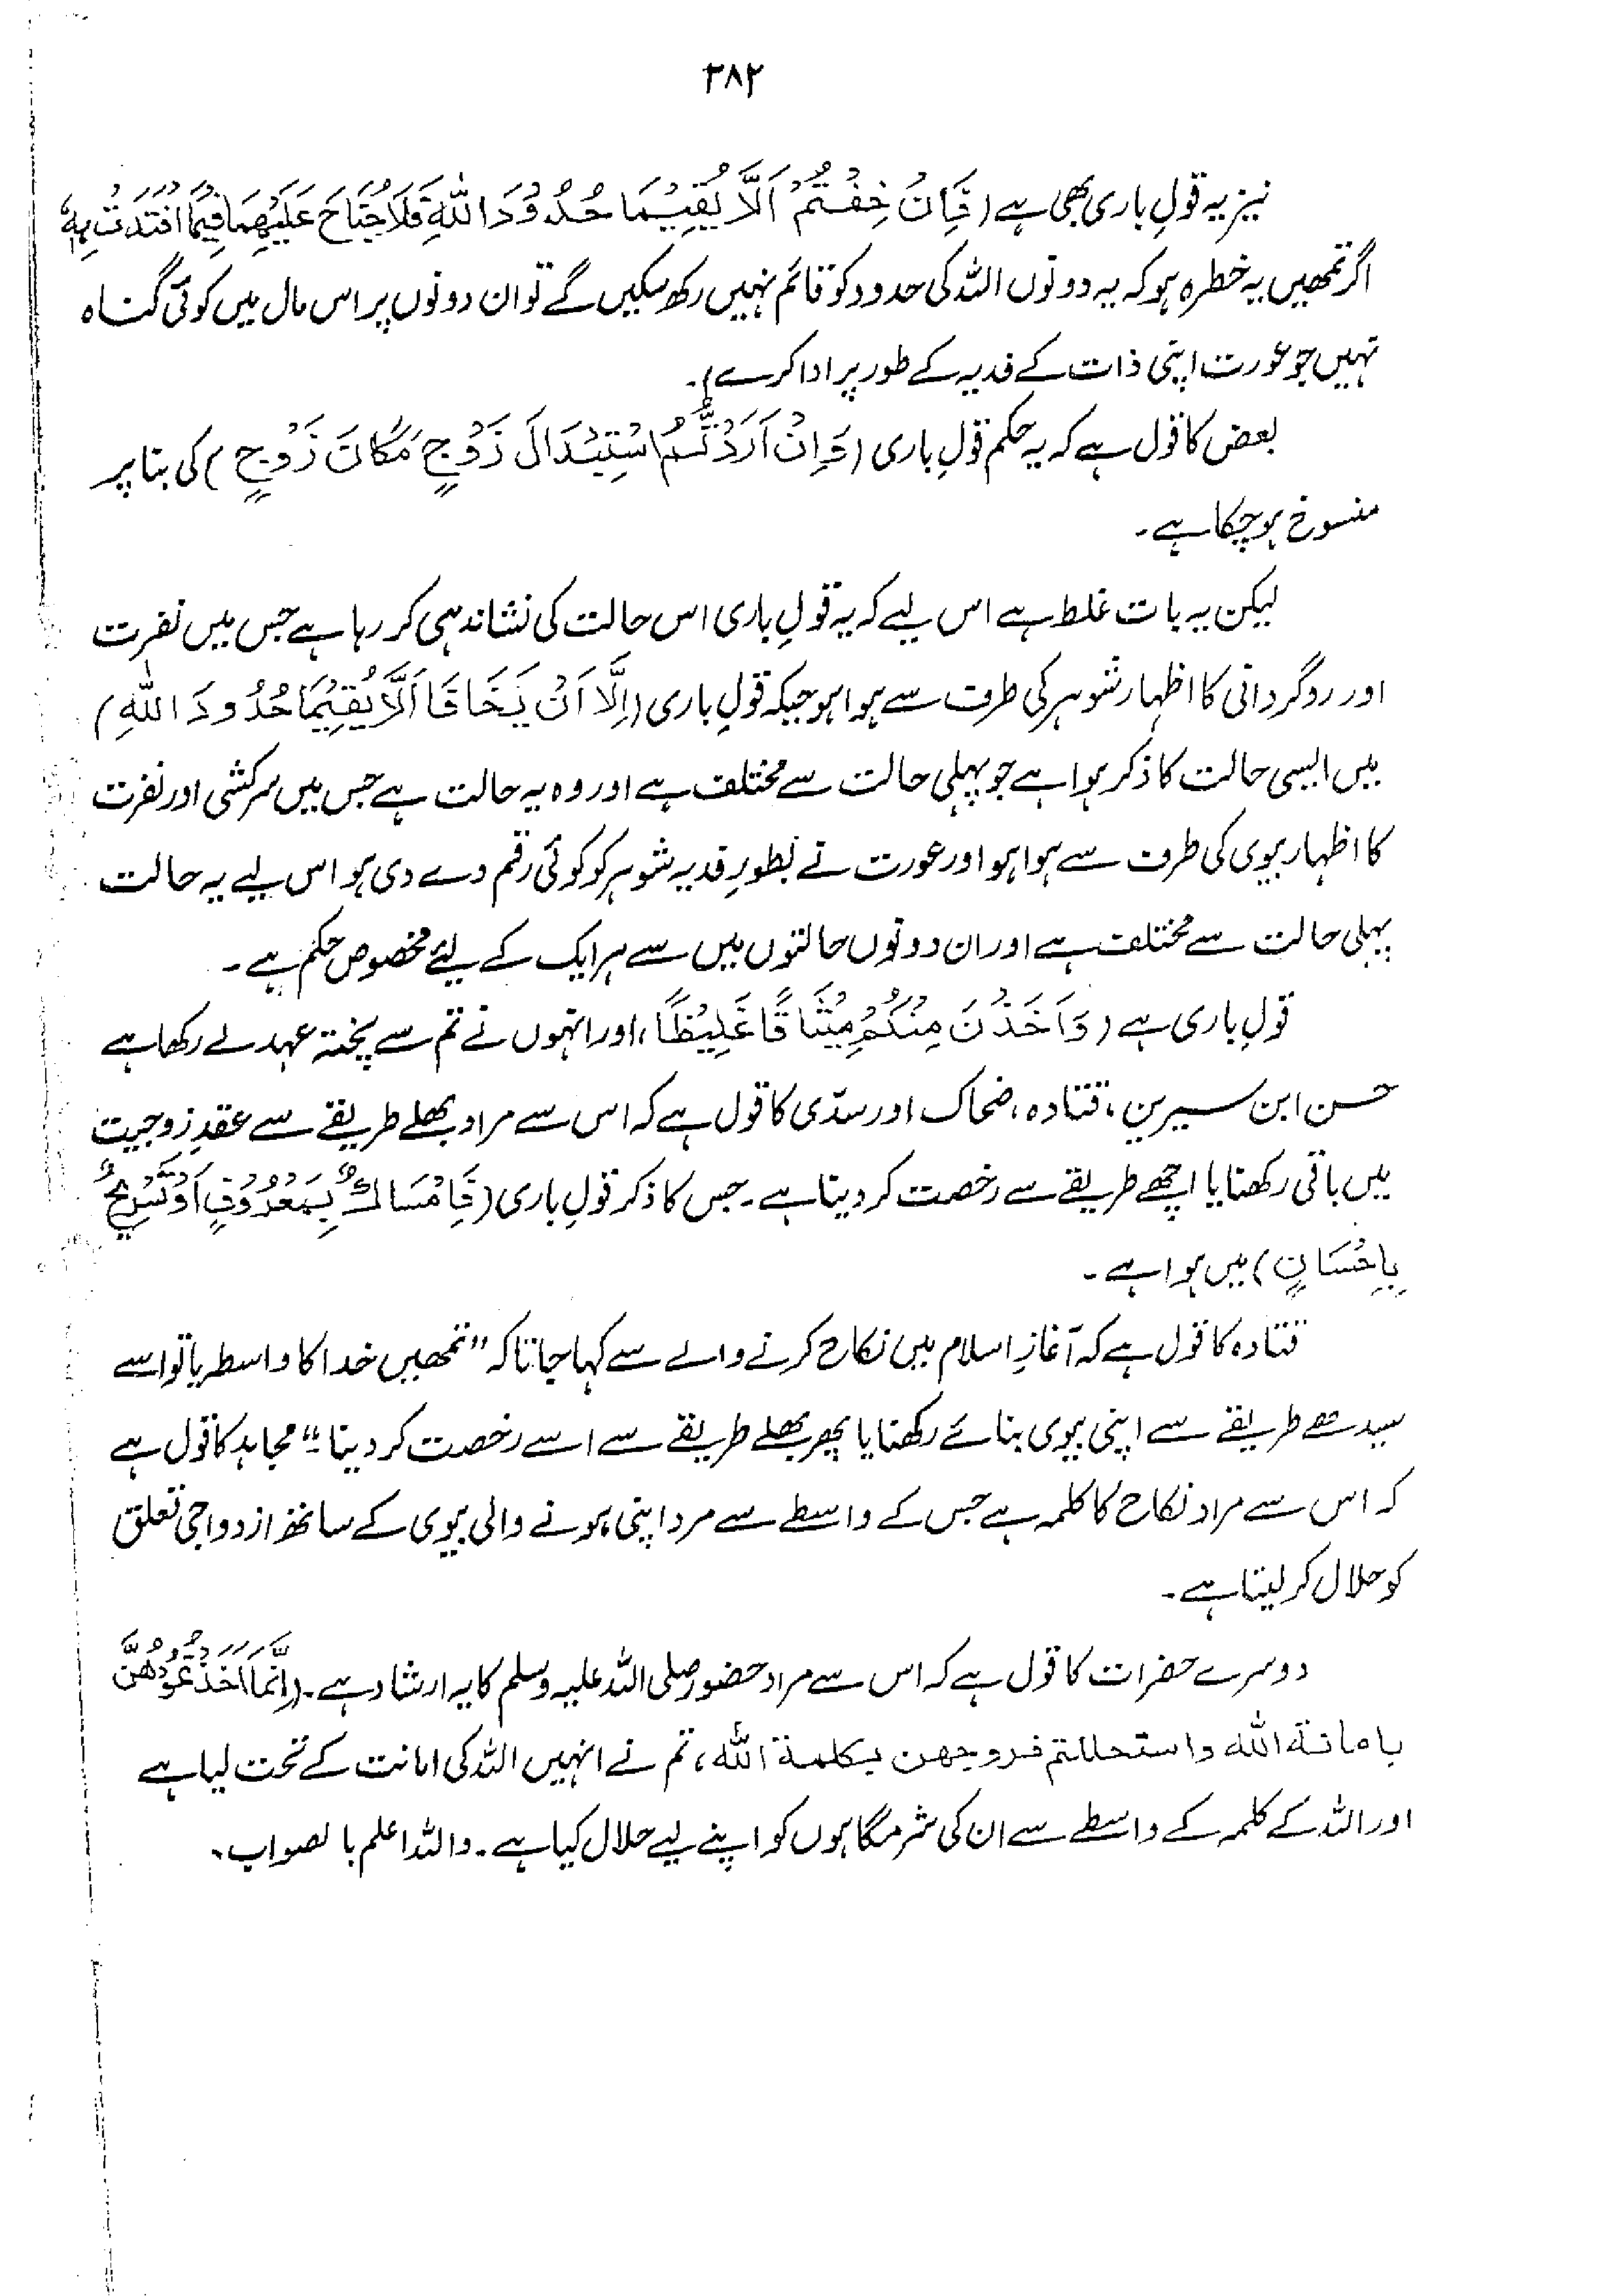 ۳۸۲
نیز یہ قولِ باری بھی ہے (فَاِنْ خِفْتُمْ اَلَّا یُقِیْمَا حُدُوْدَ اللّٰهِ فَلَا جُنَاحَ عَلَیْهِمَا فِیْمَا افْتَدَتْ بِهٖ
اگر تمھیں یہ خطرہ ہو کہ یہ دونوں اللہ کی حدود کو قائم نہیں رکھ سکیں گے تو ان دونوں پر اس مال میں کوئی گناہ
نہیں جو عورت اپنی ذات کے فدیہ کے طور پر ادا کرے)۔
بعض کا قول ہے کہ یہ حکم قولِ باری (وَاِنْ اَرَدْتُّمُ اسْتِبْدَالَ زَوْجٍ مَّکَانَ زَوْجٍ) کی بنا پر
منسوخ ہو چکا ہے۔
لیکن یہ بات غلط ہے اس لیے کہ یہ قولِ باری اس حالت کی نشاندہی کر رہا ہے جس میں نفرت
اور روگردانی کا اظہار شوہر کی طرف سے ہوا ہو جبکہ قولِ باری (اِلَّا اَنْ یَّخَافَا اَلَّا یُقِیْمَا حُدُوْدَ اللّٰهِ)
میں ایسی حالت کا ذکر ہوا ہے جو پہلی حالت سے مختلف ہے اور وہ یہ حالت ہے جس میں سرکشی اور نفرت
کا اظہار بیوی کی طرف سے ہوا ہو اور عورت نے بطورِ فدیہ شوہر کو کوئی رقم دے دی ہو اس لیے یہ حالت
پہلی حالت سے مختلف ہے اور ان دونوں حالتوں میں سے ہر ایک کے لیے مخصوص حکم ہے۔
قولِ باری ہے (وَاَخَذْنَ مِنْکُمْ مِّیْثَاقًا غَلِیْظًا، اور انہوں نے تم سے پختہ عہد لے رکھا ہے
حسن ابن سیرین، قتادہ، ضحاک اور سدّی کا قول ہے کہ اس سے مراد بھلے طریقے سے عقدِ زوجیت
میں باقی رکھنا یا اچھے طریقے سے رخصت کر دینا ہے۔ جس کا ذکر قولِ باری (فَاِمْسَاكٌ بِمَعْرُوْفٍ اَوْ تَسْرِیْحٌ
بِاِحْسَانٍ) میں ہوا ہے۔
قتادہ کا قول ہے کہ آغازِ اسلام میں نکاح کرنے والے سے کہا جاتا کہ "تمھیں خدا کا واسطہ یا تو اسے
سیدھے طریقے سے اپنی بیوی بنائے رکھنا یا پھر بھلے طریقے سے اسے رخصت کر دینا۔" مجاہد کا قول ہے
کہ اس سے مراد نکاح کا کلمہ ہے جس کے واسطے سے مرد اپنی ہونے والی بیوی کے ساتھ ازدواجی تعلق
کو حلال کر لیتا ہے۔
دوسرے حضرات کا قول ہے کہ اس سے مراد حضور صلی اللہ علیہ وسلم کا یہ ارشاد ہے۔ (اِنَّمَا اَخَذْتُمُوْهُنَّ
بامانة الله واستحللتم فروجهن بكلمة الله، تم نے انہیں اللہ کی امانت کے تحت لیا ہے
اور اللہ کے کلمہ کے واسطے سے ان کی شرمگاہوں کو اپنے لیے حلال کیا ہے۔ واللہ اعلم بالصواب۔